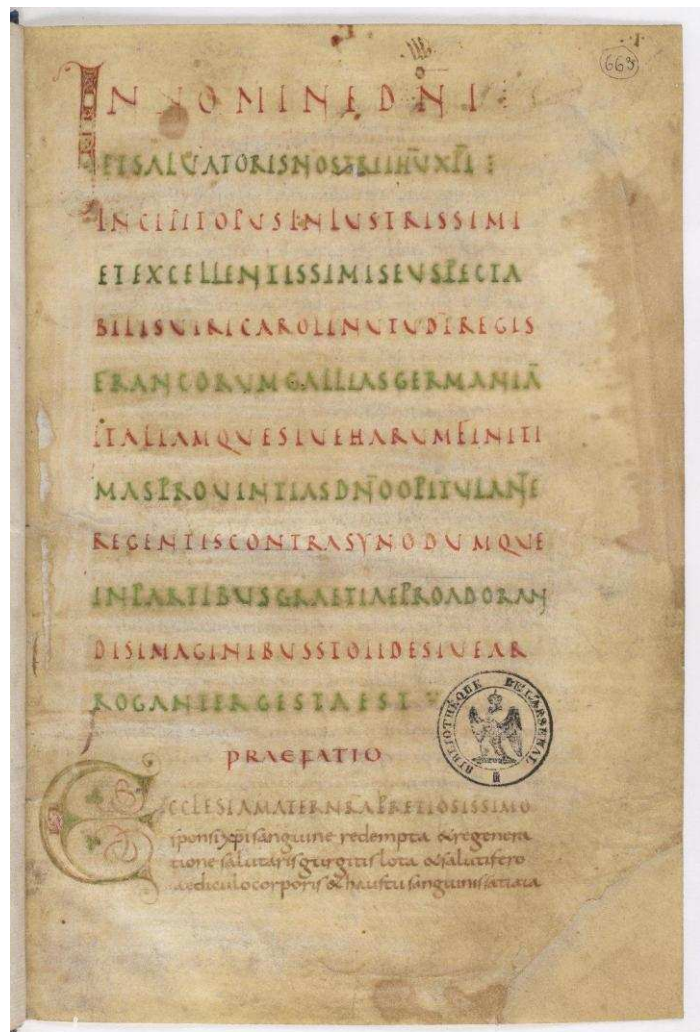 663
IN NOMINE DN̄I
ET SALVATORIS NOSTRI IHŪ XPĪ :
INCIPIT OPUS INLUSTRISSIMI
ET EXCELLENTISSIMI SEU SPECTA
BILIS VIRI CAROLI NUTU DĪ REGIS
FRANCORUM GALLIAS GERMANIĀ
ITALIAMQUE SIVE HARUM FINITI
MAS PROVINTIAS DN̄O OPITULANTE
REGENTIS CONTRA SYNODUM QUE
IN PARTIBUS GRAETIAE PRO ADORAN
DIS IMAGINIBUS STOLIDE SIVE AR
ROGANTER GESTA EST
PRAEFATIO
ECCLESIA MATER NR̄A PRETIOSISSIMO
sponsi xpi sanguine redempta & regenera
tione salutaris gurgitis lota & salutifero
aediculo corporis & haustu sanguinis satiata
BIBLIOTHÈQUE DE L'ARSENAL